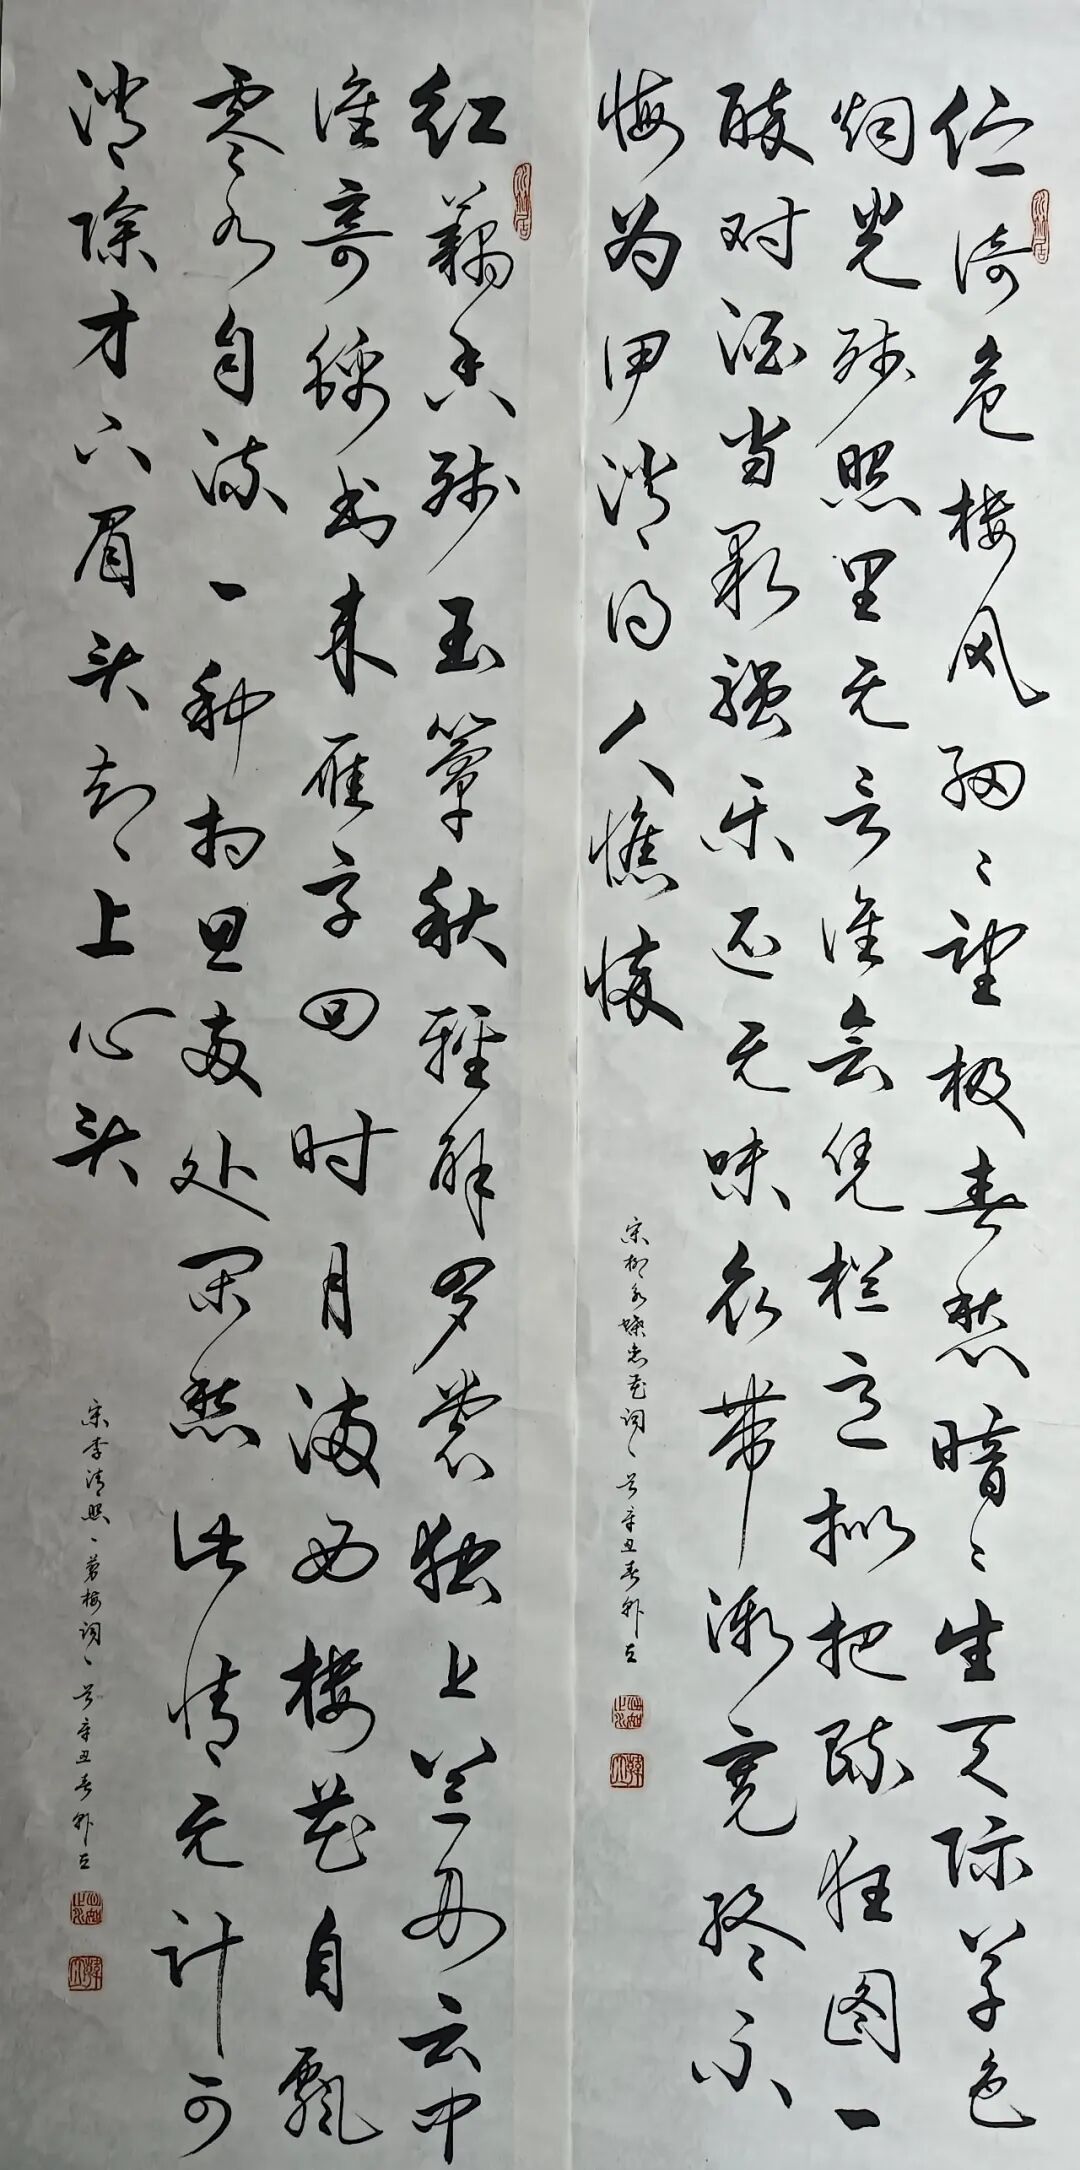 伫倚危楼风细々望极春愁暗々生天际草色
烟光残照里无言谁会凭栏意拟把疏狂图一
醉对酒当歌强乐还无味衣带渐宽终不
悔为伊消得人憔悴
宋柳永蝶恋花词一首辛丑春
红藕香残玉簟秋轻解罗裳独上兰舟云中
谁寄锦书来雁字回时月满西楼花自飘
零水自流一种相思两处闲愁此情无计可
消除才下眉头却上心头
宋李清照一剪梅词一首辛丑春